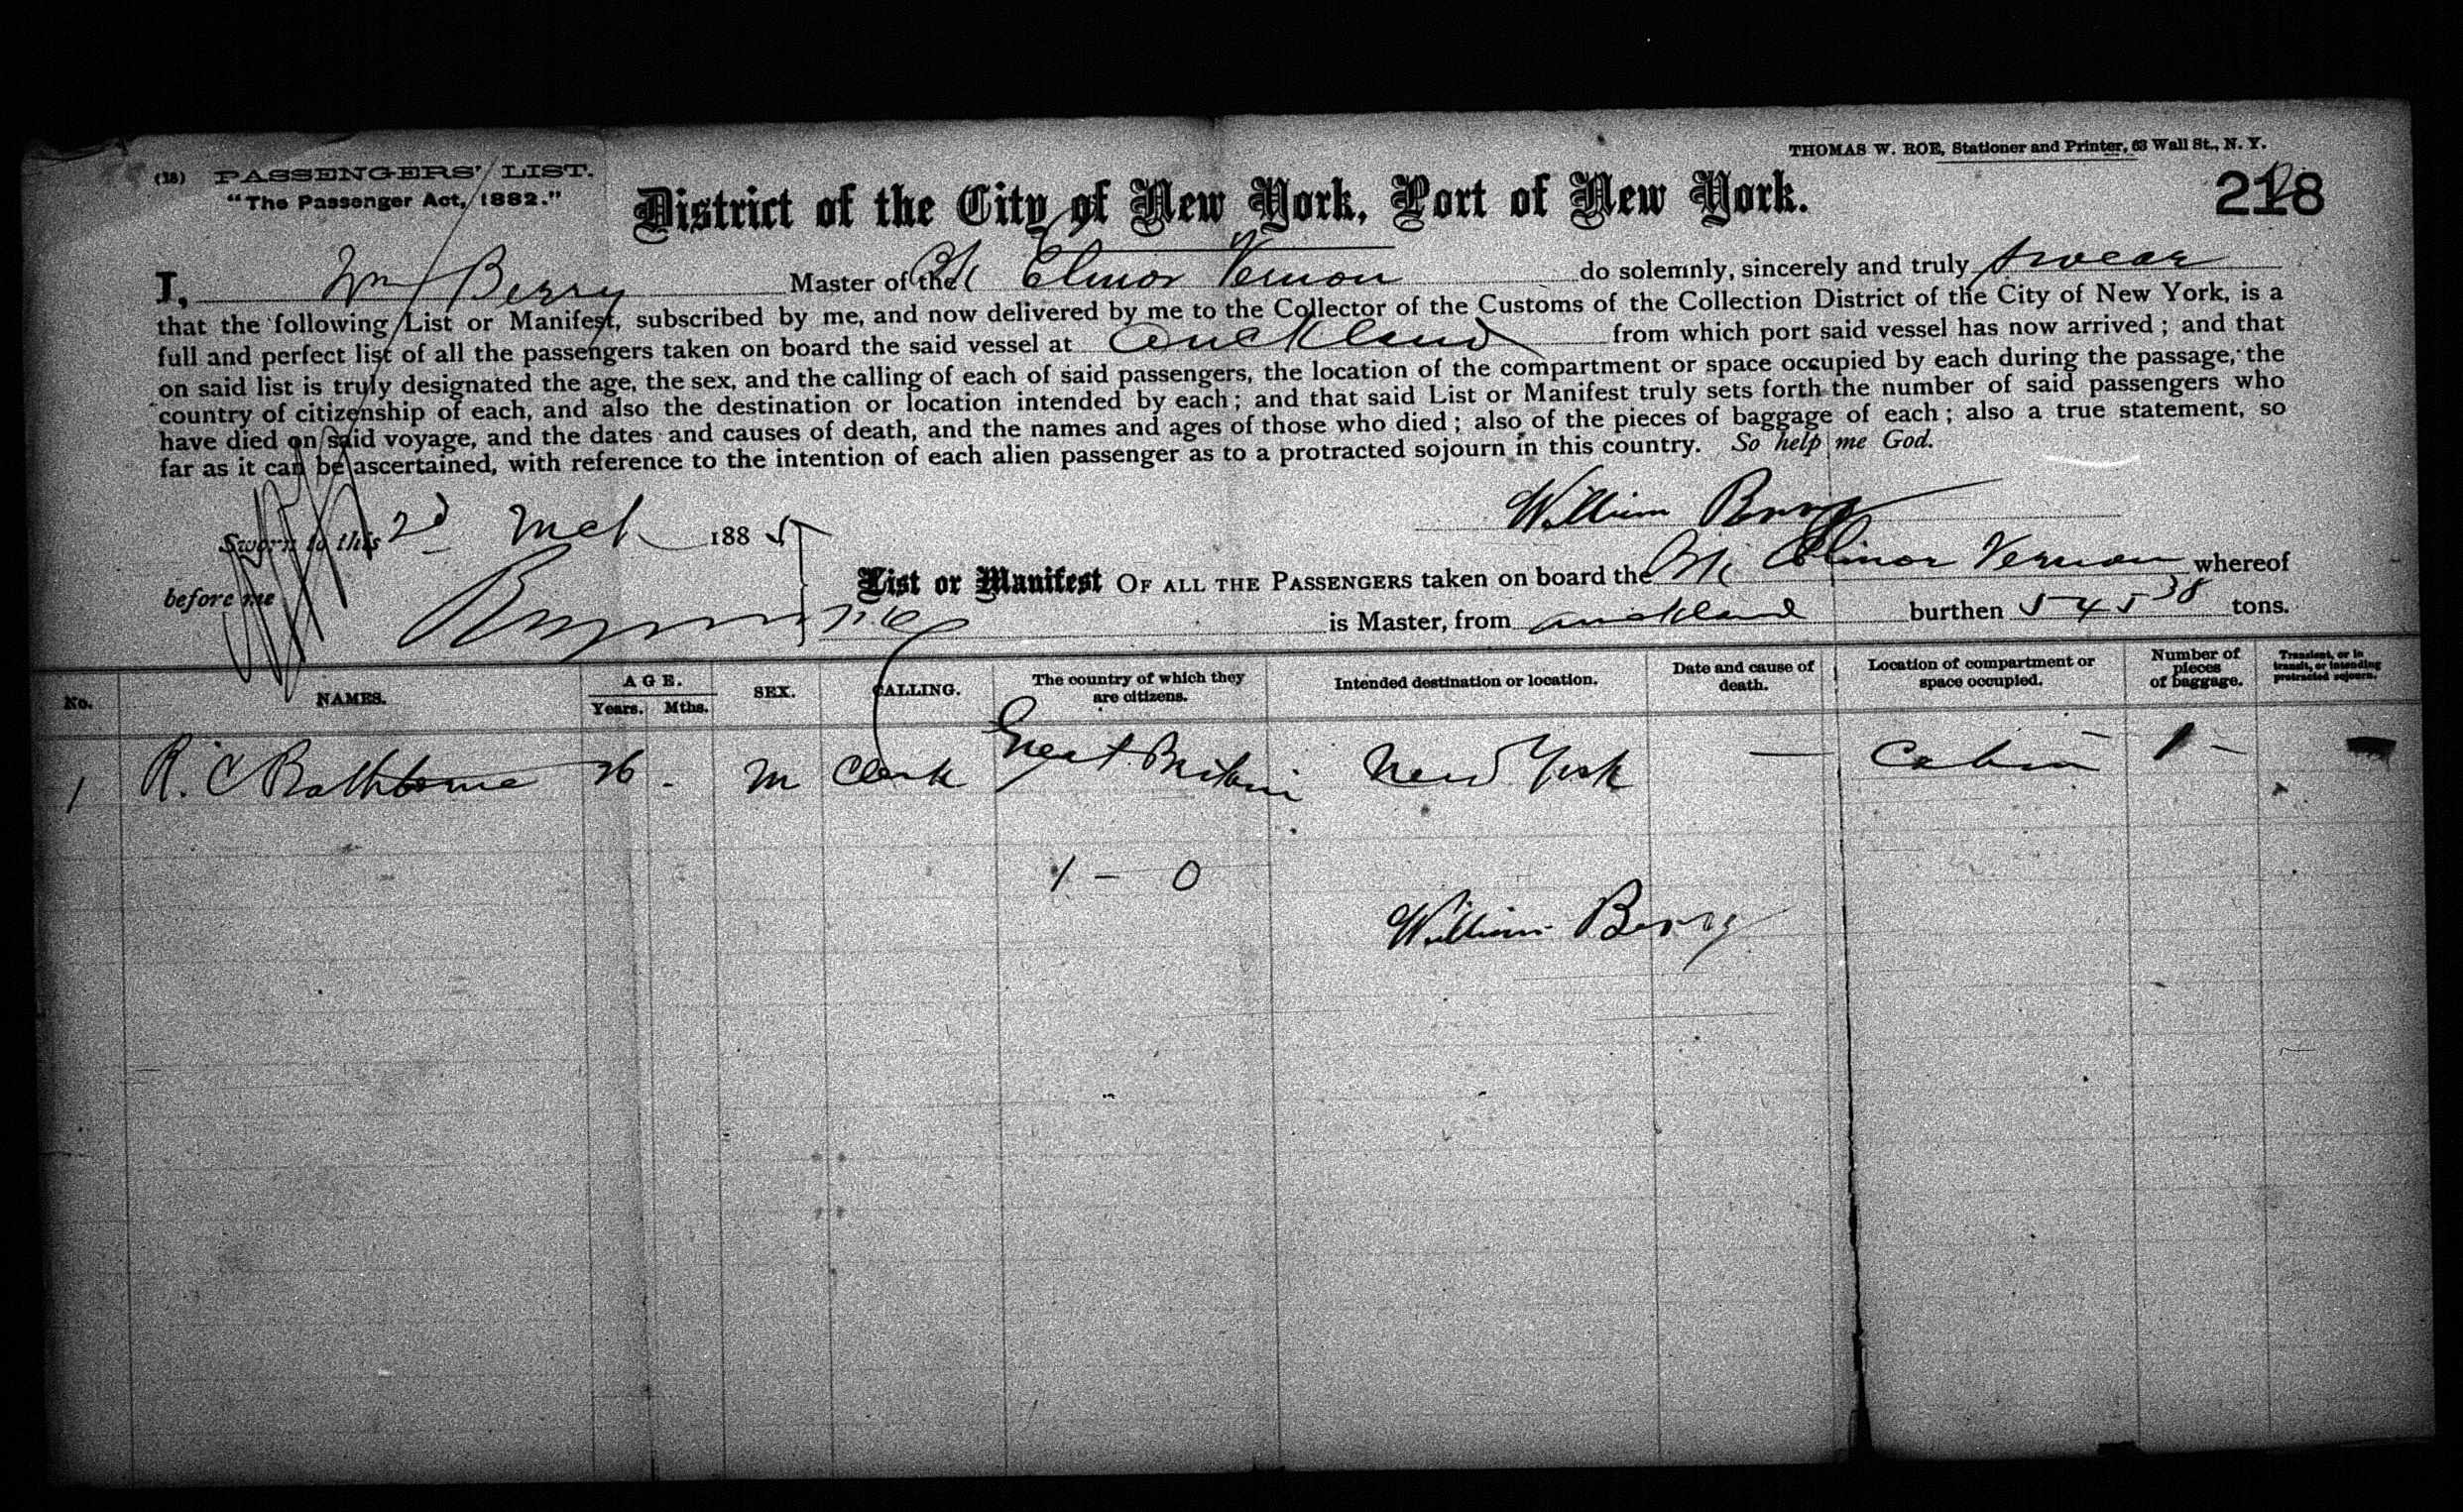 THOMAS W. ROE, Stationer and Printer, 63 Wall St., N. Y.
(18) PASSENGERS' LIST.
"The Passenger Act, 1882."
District of the City of New York, Port of New York.
218
I, Wm Berry Master of the Bk Elinor Vernon do solemnly, sincerely and truly swear
that the following List or Manifest, subscribed by me, and now delivered by me to the Collector of the Customs of the Collection District of the City of New York, is a
full and perfect list of all the passengers taken on board the said vessel at Auckland from which port said vessel has now arrived; and that
on said list is truly designated the age, the sex, and the calling of each of said passengers, the location of the compartment or space occupied by each during the passage, the
country of citizenship of each, and also the destination or location intended by each; and that said List or Manifest truly sets forth the number of said passengers who
have died on said voyage, and the dates and causes of death, and the names and ages of those who died; also of the pieces of baggage of each; also a true statement, so
far as it can be ascertained, with reference to the intention of each alien passenger as to a protracted sojourn in this country. So help me God.
William Berry
Sworn to this 2d Mch 1885
before me
List or Manifest OF ALL THE PASSENGERS taken on board the Bk Elinor Vernon whereof
is Master, from Auckland burthen 545 38 tons.
No. NAMES. AGE. Years. Mths. SEX. CALLING. The country of which they are citizens. Intended destination or location. Date and cause of death. Location of compartment or space occupied. Number of pieces of baggage. Transient, or in transit, or intending protracted sojourn.
1 R. C Rathborne 26 - M Clerk Great Britain New York — Cabin - 1 -
1 - 0
William Berry